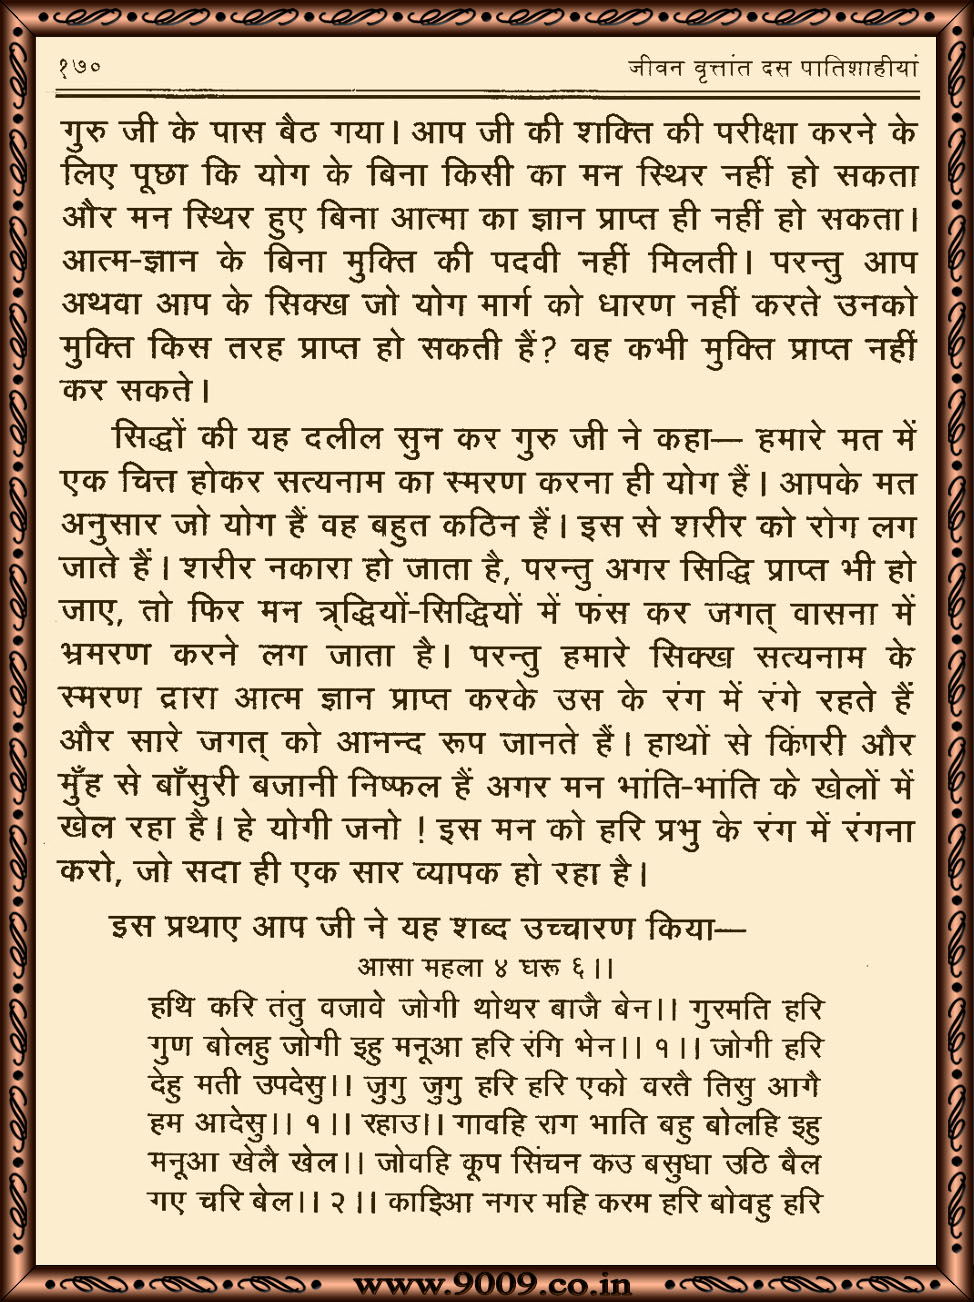 १७० जीवन वृत्तांत दस पातिशाहीयां
गुरु जी के पास बैठ गया। आप जी की शक्ति की परीक्षा करने के
लिए पूछा कि योग के बिना किसी का मन स्थिर नहीं हो सकता
और मन स्थिर हुए बिना आत्मा का ज्ञान प्राप्त ही नहीं हो सकता।
आत्म-ज्ञान के बिना मुक्ति की पदवी नहीं मिलती। परन्तु आप
अथवा आप के सिक्ख जो योग मार्ग को धारण नहीं करते उनको
मुक्ति किस तरह प्राप्त हो सकती हैं? वह कभी मुक्ति प्राप्त नहीं
कर सकते।
सिद्धों की यह दलील सुन कर गुरु जी ने कहा— हमारे मत में
एक चित्त होकर सत्यनाम का स्मरण करना ही योग हैं। आपके मत
अनुसार जो योग हैं वह बहुत कठिन हैं। इस से शरीर को रोग लग
जाते हैं। शरीर नकारा हो जाता है, परन्तु अगर सिद्धि प्राप्त भी हो
जाए, तो फिर मन त्र्द्धियों-सिद्धियों में फंस कर जगत् वासना में
भ्रमरण करने लग जाता है। परन्तु हमारे सिक्ख सत्यनाम के
स्मरण द्वारा आत्म ज्ञान प्राप्त करके उस के रंग में रंगे रहते हैं
और सारे जगत् को आनन्द रूप जानते हैं। हाथों से किंगरी और
मुँह से बाँसुरी बजानी निष्फल हैं अगर मन भांति-भांति के खेलों में
खेल रहा है। हे योगी जनो ! इस मन को हरि प्रभु के रंग में रंगना
करो, जो सदा ही एक सार व्यापक हो रहा है।
इस प्रथाए आप जी ने यह शब्द उच्चारण किया—
आसा महला ४ घरू ६।।
हथि करि तंतु वजावे जोगी थोथर बाजै बेन।। गुरमति हरि
गुण बोलहु जोगी इहु मनूआ हरि रंगि भेन।। १।। जोगी हरि
देहु मती उपदेसु।। जुगु जुगु हरि हरि एको वरतै तिसु आगै
हम आदेसु।। १।। रहाउ।। गावहि राग भाति बहु बोलहि इहु
मनूआ खेलै खेल।। जोवहि कूप सिंचन कउ बसुधा उठि बैल
गए चरि बेल।। २।। काइिआ नगर महि करम हरि बोवहु हरि
www.9009.co.in